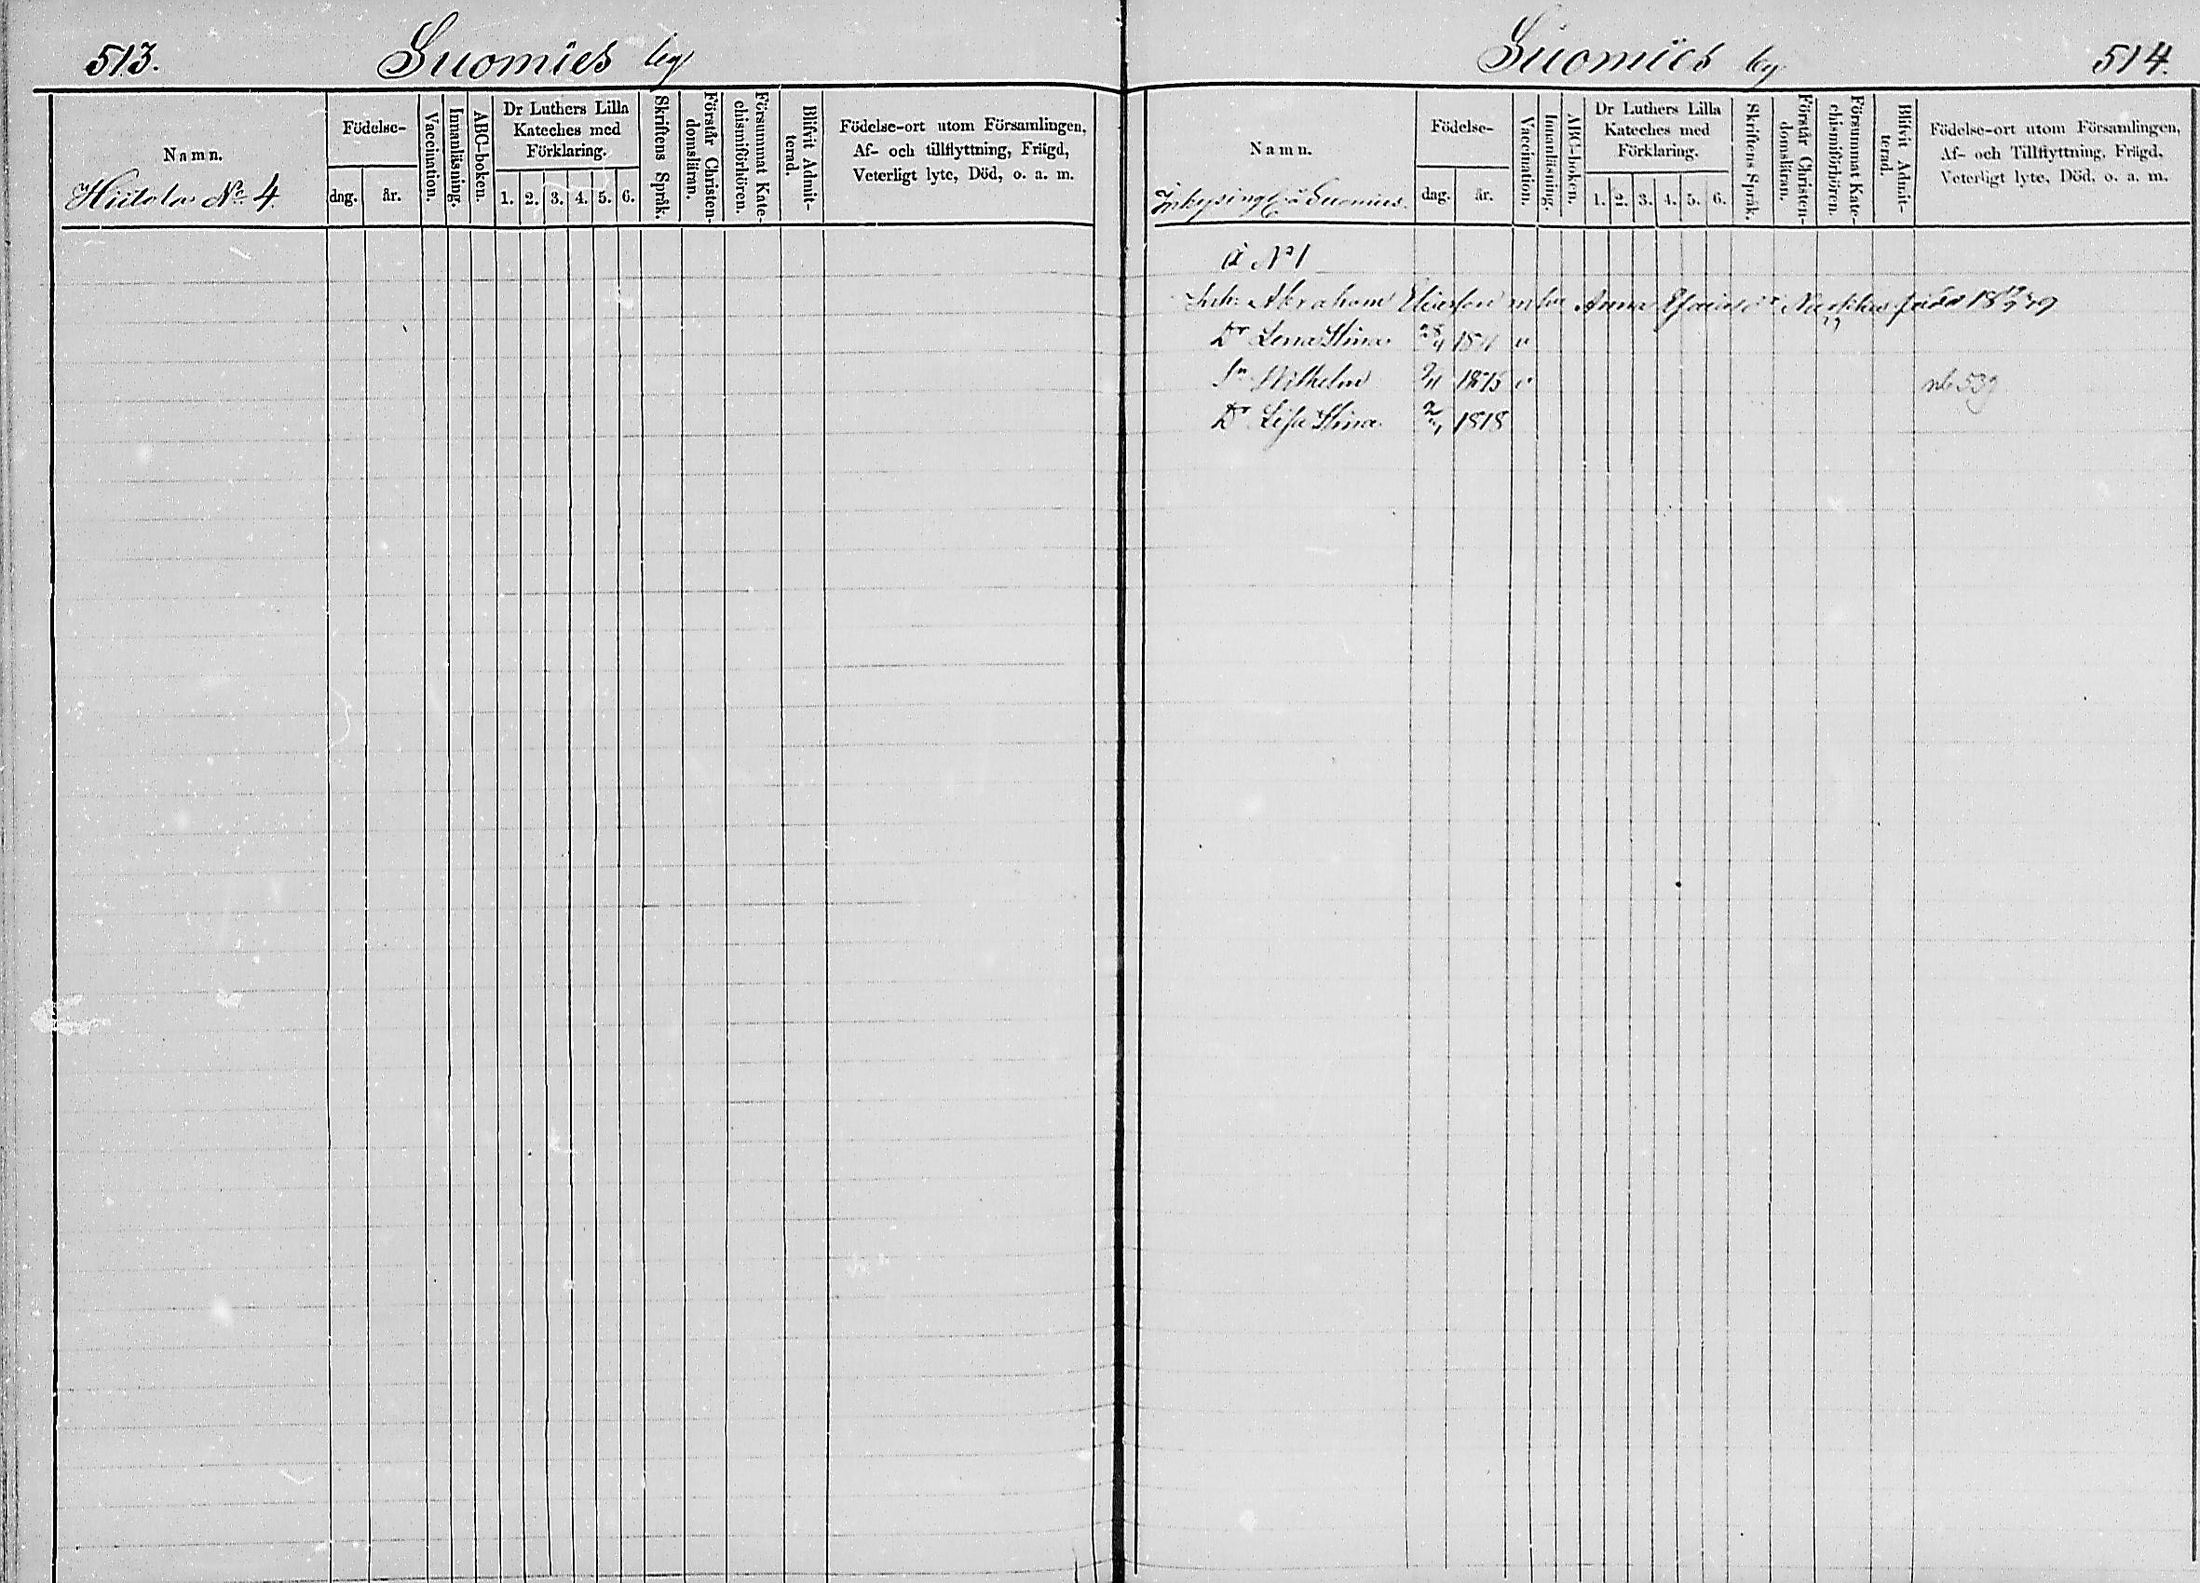 513. Suomies by
Namn.
Hiitola No 4.
Födelse-
dag. år.
Vaccination.
Innanläsning.
ABC-boken.
Dr Luthers Lilla
Kateches med
Förklaring.
1. 2. 3. 4. 5. 6.
Skriftens Språk.
Förstår Christen-
domsläran.
Försummat Kate-
chismiförhören.
Blifvit Admit-
terad.
Födelse-ort utom Församlingen,
Af- och tillflyttning, Frägd,
Veterligt lyte, Död, o. a. m.
Suomies by 514.
Namn.
å Suomies.
Födelse-
dag. år.
Vaccination.
Innanläsning.
ABC-boken.
Dr Luthers Lilla
Kateches med
Förklaring.
1. 2. 3. 4. 5. 6.
Skriftens Språk.
Förstår Christen-
domsläran.
Försummat Kate-
chismiförhören.
Blifvit Admit-
terad.
Födelse-ort utom Församlingen,
Af- och Tillflyttning, Frägd,
Veterligt lyte, Död, o. a. m.
å No 1
Inh. Abraham Eliesson Anna
Dr Lena Stina v
Sn Wilhelm 1815 v 539
Dr Lisa Stina 1818